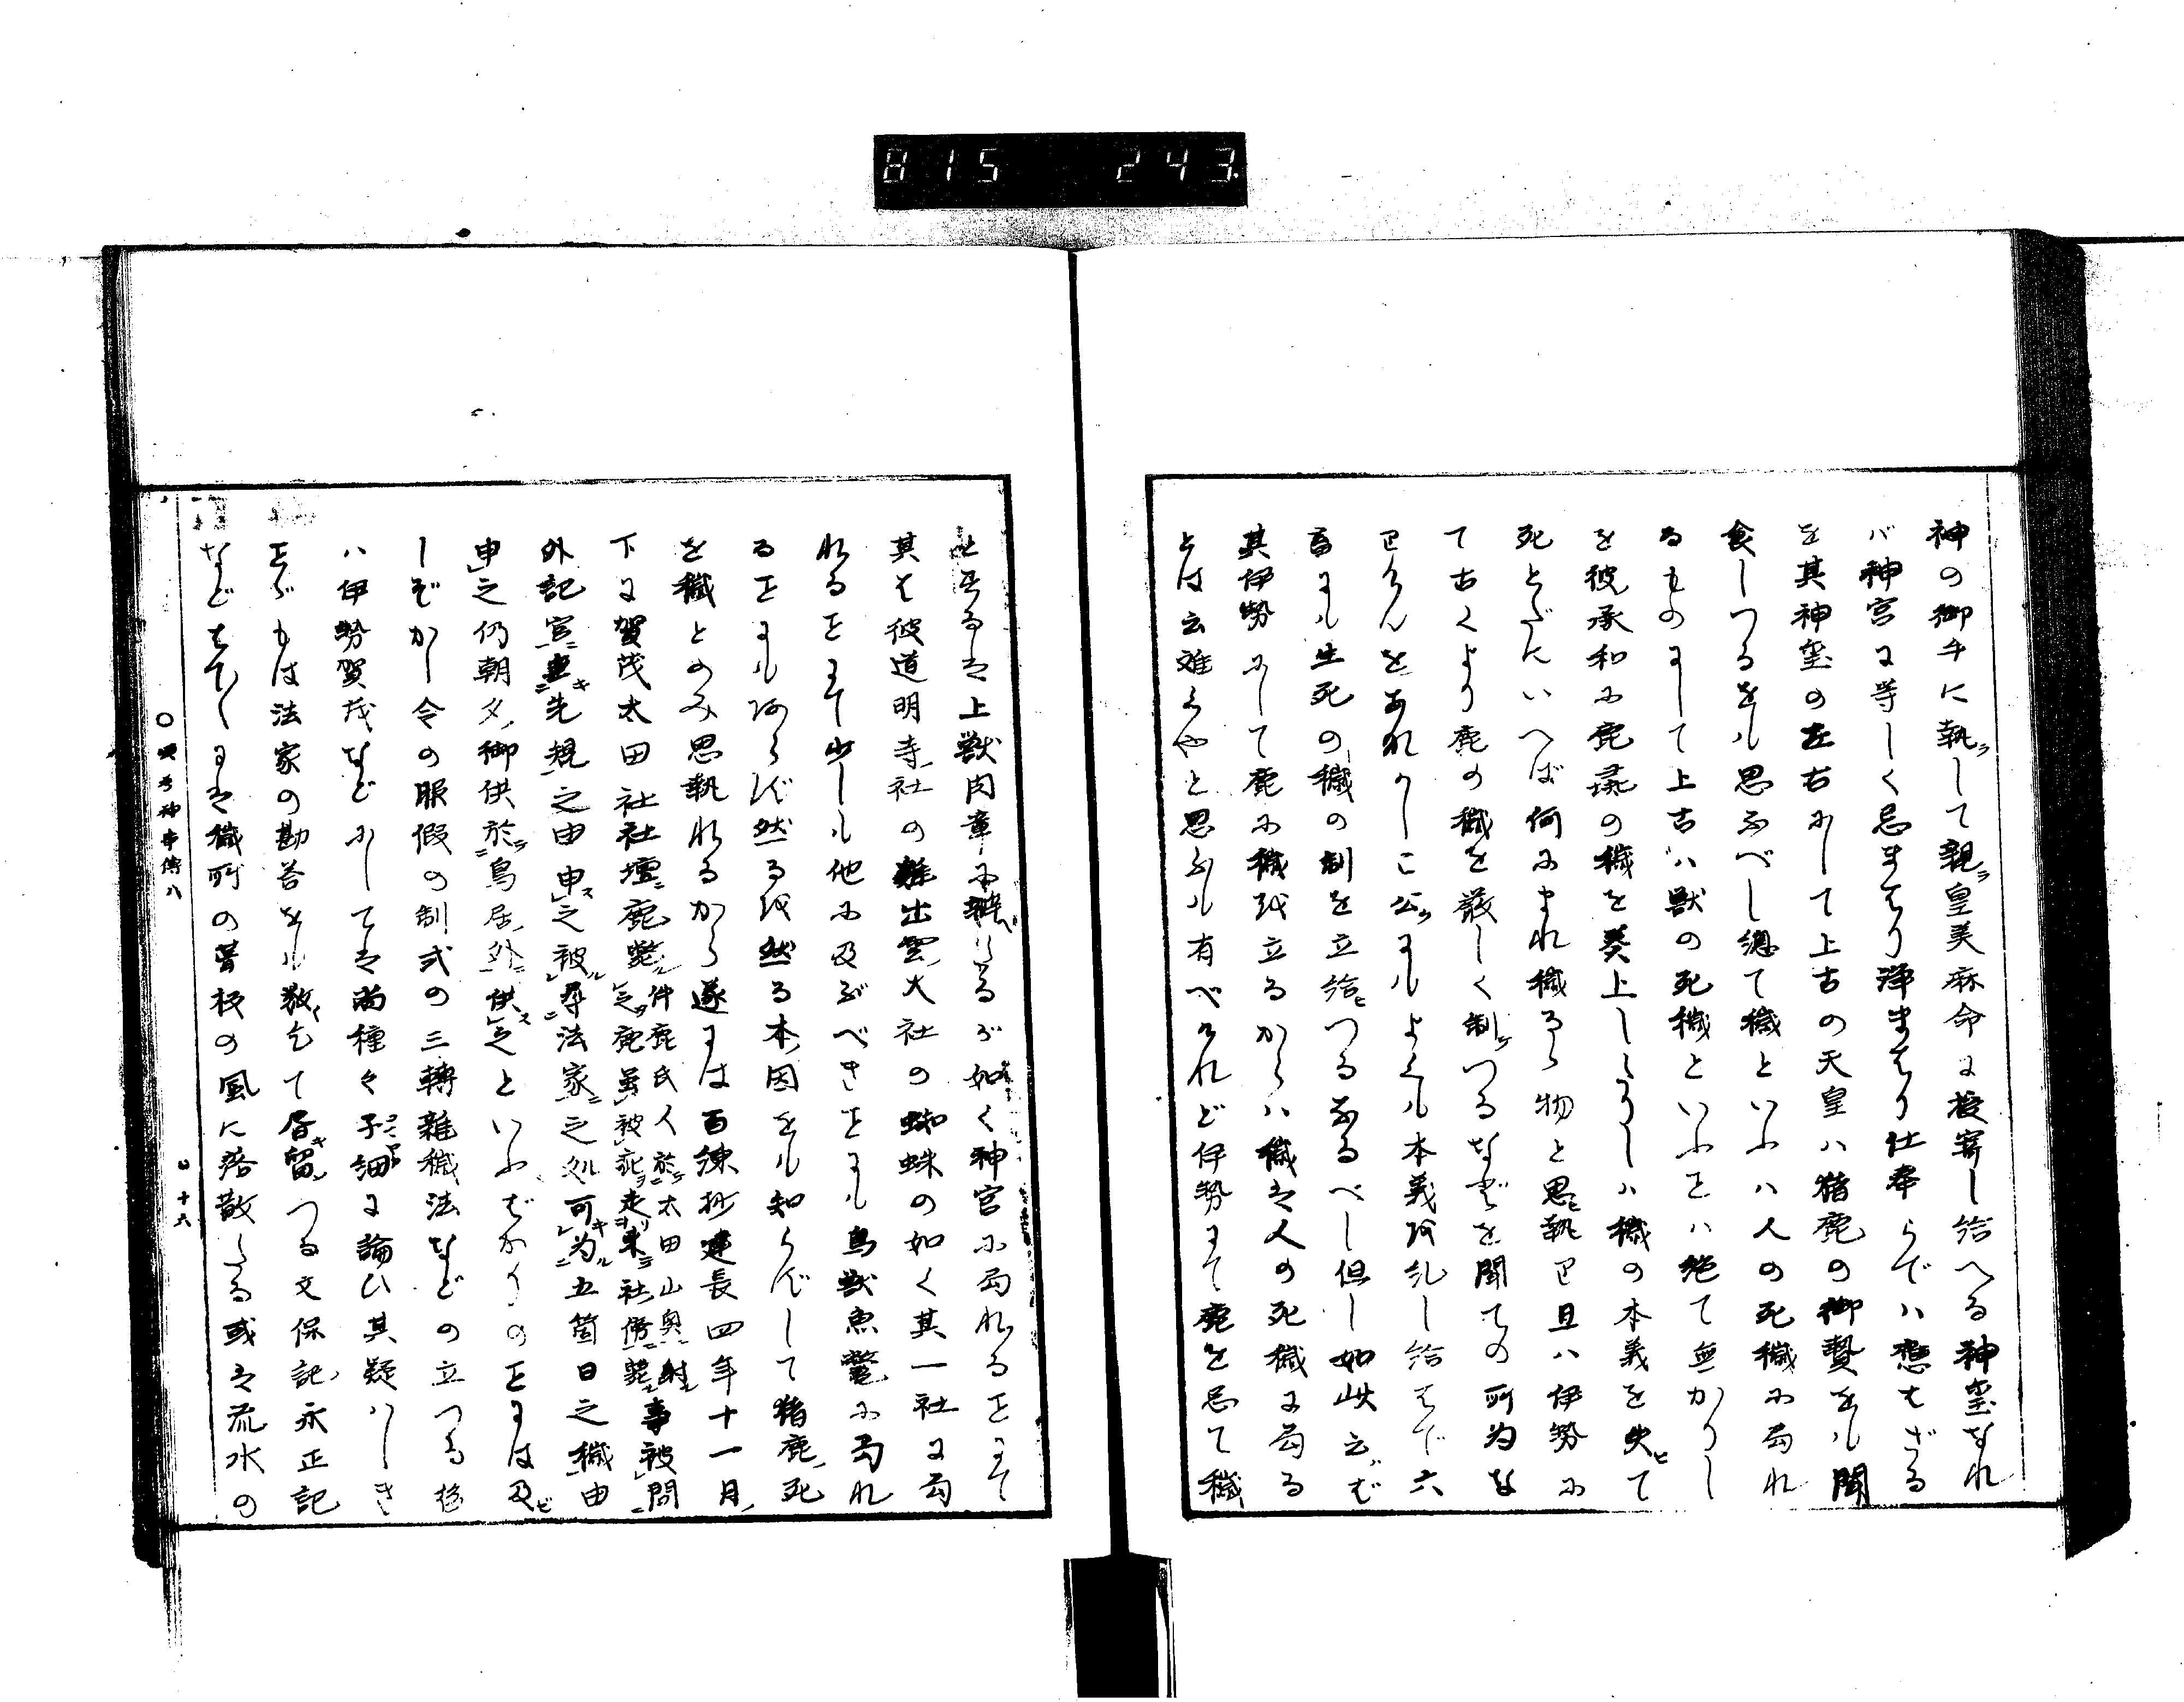 815 243.
神の御手に執して親皇美麻命に授寄し給へる神璽なれ
バ神宮に等しく忌まはり浄まはり仕奉らでハ應はざる
を其神璽の左右にして上古の天皇ハ猪鹿の御贄をも聞
食しつるをも思ふべし總て穢といふハ人の死穢に局れ
るものにして上古ハ獣の死穢といふことハ絶て無かりし
を彼承和に鹿彘の穢を奏上しゝかしハ穢の本義を失て
死とだにいへば何にまれ穢らふ物と思執り且ハ伊勢に
て古くより鹿の穢を厳しく制つるなどを聞ての所為な
りけんをあれかし公にもよくも本義糺し給はで六
畜にも生死の穢の制を立給つるなるべし但し如此云ば
其伊勢にして鹿に穢を立るからハ穢は人の死穢に局る
とは云難くやと思ふも有べけれど伊勢にて鹿を忌て穢
とせるは上獣肉章に擬へるが如く神宮に局れることにて
其は彼道明寺社の雞出雲大社の蜘蛛の如く其一社に局
れることにて少しも他に及ぶべきことにも鳥獣魚鼈に局れ
ることにもあらず然るを然る本因をも知らずして猪鹿死
を穢とのみ思執れるから遂には百練抄建長四年十一月
下に賀茂太田社社壇鹿斃件鹿氏人於太田山奥射之鹿虽被疵走来社傍斃事被問
外記官先規之由申之被尋法家之処可為五箇日之穢由
申之仍朝夕御供於鳥居外供之といふばかりのことには及
しぞかし令の服假の制式の三轉雑穢法などの立つる後
ハ伊勢賀茂などにしては尚種々子細に論ひ其疑ハしき
ことゞもは法家の勘答をも数乞て書留つる文保記永正記
などはてにては穢所の菅根の風に落散たる或は流水の
十六